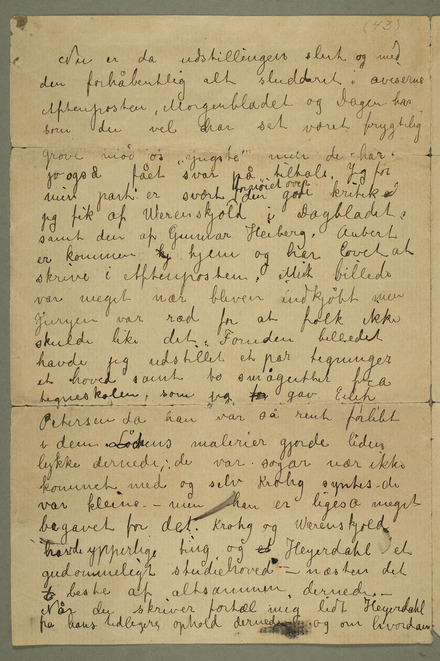 (43)
Nu er da udstillingen slut og med
den forhåbentlig alt sludderet i aviserne
Aftenposten, Morgenbladet og Dagen har
som du vel har set været frygtelig
grove mod os „yngste" men de har
jo også fået svar på tiltale. Jeg for
min part er svært fornøiet over den gode kritik
jeg fik af Werenskjold i Dagbladet,
samt den af Gunnar Heiberg. Aubert
er kommen hjem og har lovet at
skrive i Aftenposten. Mit billede
var meget nær bleven indkjøbt men
Juryen var ræd for at folk ikke
skulde like det. Foruden billedet
havde jeg udstillet et par tegninger
et hoved samt to smågutter fra
tegneskolen, som jeg gav Eilif
Petersen da han var så rent forlibt
i dem. malerier gjorde liden
lykke dernede; de var sogar nær ikke
kommet med og selv Krohg syntes de
var kleine. – men han er ligeså meget
begavet for det. Krohg og Werenskjold
havde ypperlige ting og Heyerdahl et
gudommeligt studiehoved – næsten det
beste af altsammen dernede. –
Når du skriver fortæl mig lidt Heyerdahl
fra hans tidligere ophold dernede og om hvordan